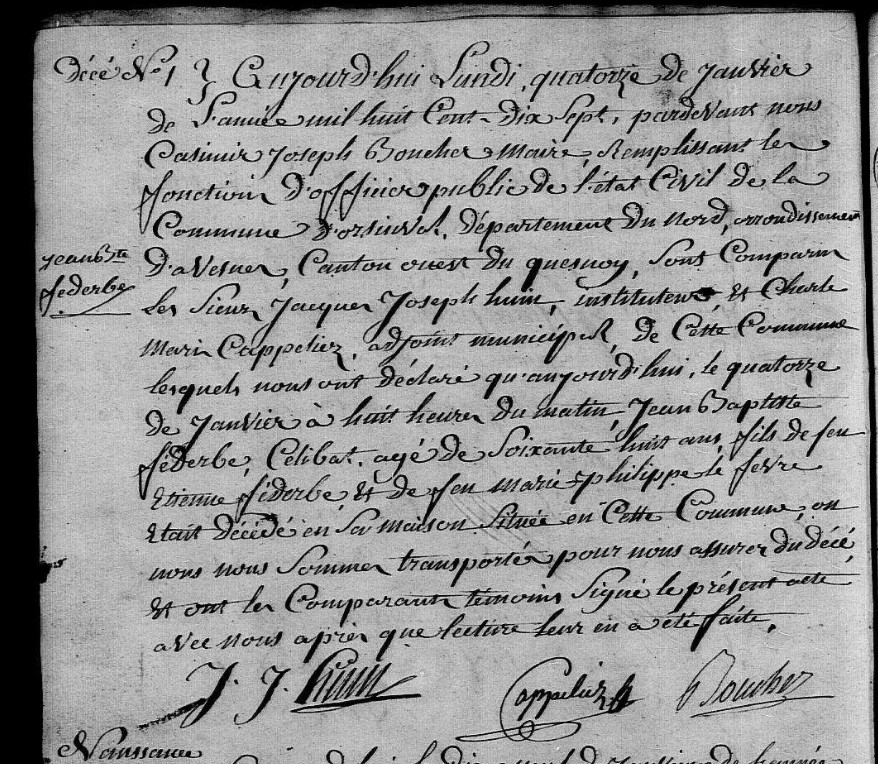 Décé No 1 Aujourd'hui Lundi, quatorze de Janvier
de L'année mil huit Cent Dix Sept, pardevant nous
Casimir Joseph Boucher maire, Remplissant les
fonction D'officier public de l'état Civil de la
Commune D'orsinval, Département du nord, arrondissement
jean Bte
féderbe
D'avesnes, Canton ouest du quesnoy, Sont Comparus
les Sieurs Jacques Joseph huin, instituteur et Charle
Marie Cappeliez, adjoint municipal, de Cette Commune
lesquels nous ont déclaré qu'aujourd'hui, le quatorze
de Janvier à huit heures du matin, Jean Baptiste
féderbe, Celibat, agé de Soixante huit ans, fils de feu
Etienne féderbe, et de feu marie philippe le fevre
Etait décédé en Sa maison Située en Cette Commune, ou
nous nous Sommes transportés pour nous assurer du décé,
Et ont les Comparants témoins Signé le présent acte
avec nous après que lecture leur en a été faite.
J. J. Huin Cappeliez Boucher
Naissance